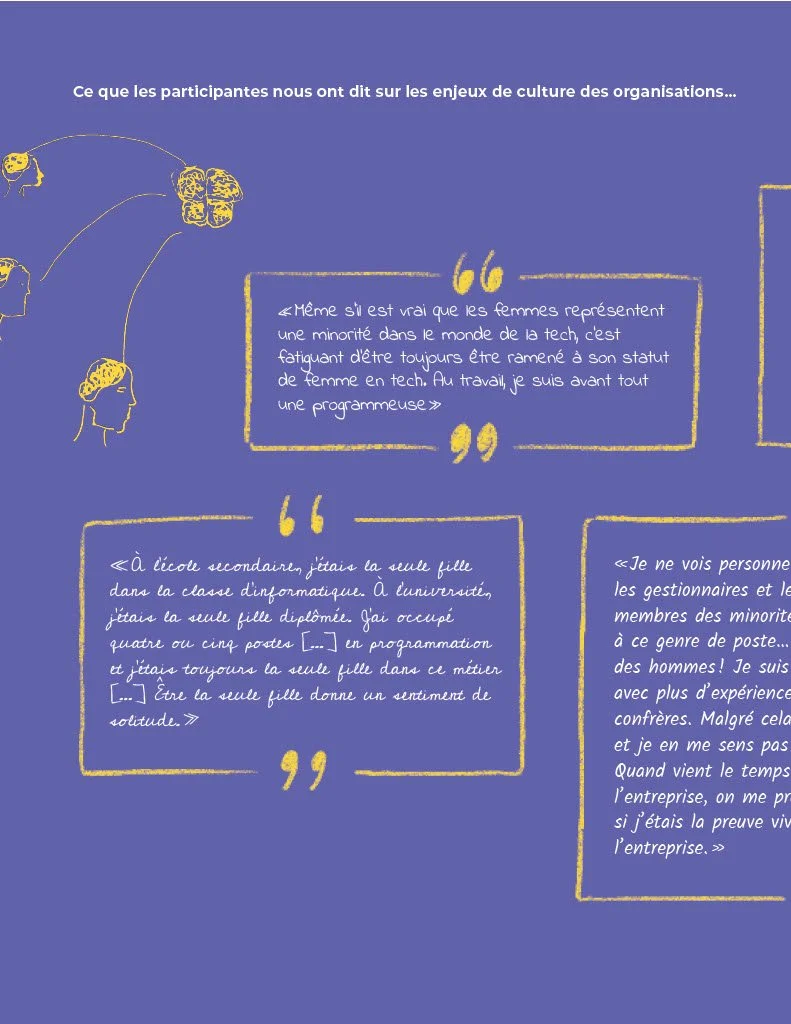 Ce que les participantes nous ont dit sur les enjeux de culture des organisations...
«Même s'il est vrai que les femmes représentent
une minorité dans le monde de la tech, c'est
fatiguant d'être toujours être ramené à son statut
de femme en tech. Au travail, je suis avant tout
une programmeuse»
«À l'école secondaire, j'étais la seule fille
dans la classe d'informatique. À l'université,
j'étais la seule fille diplômée. J'ai occupé
quatre ou cinq postes [...] en programmation
et j'étais toujours la seule fille dans ce métier
[...] Être la seule fille donne un sentiment de
solitude.»
«Je ne vois personne
les gestionnaires et
membres des
à ce genre de poste...
des hommes! Je suis
avec plus d'expérience
confrères. Malgré cela
et je en me sens pas
Quand vient le temps
l'entreprise, on me
si j'étais la preuve
l'entreprise.»